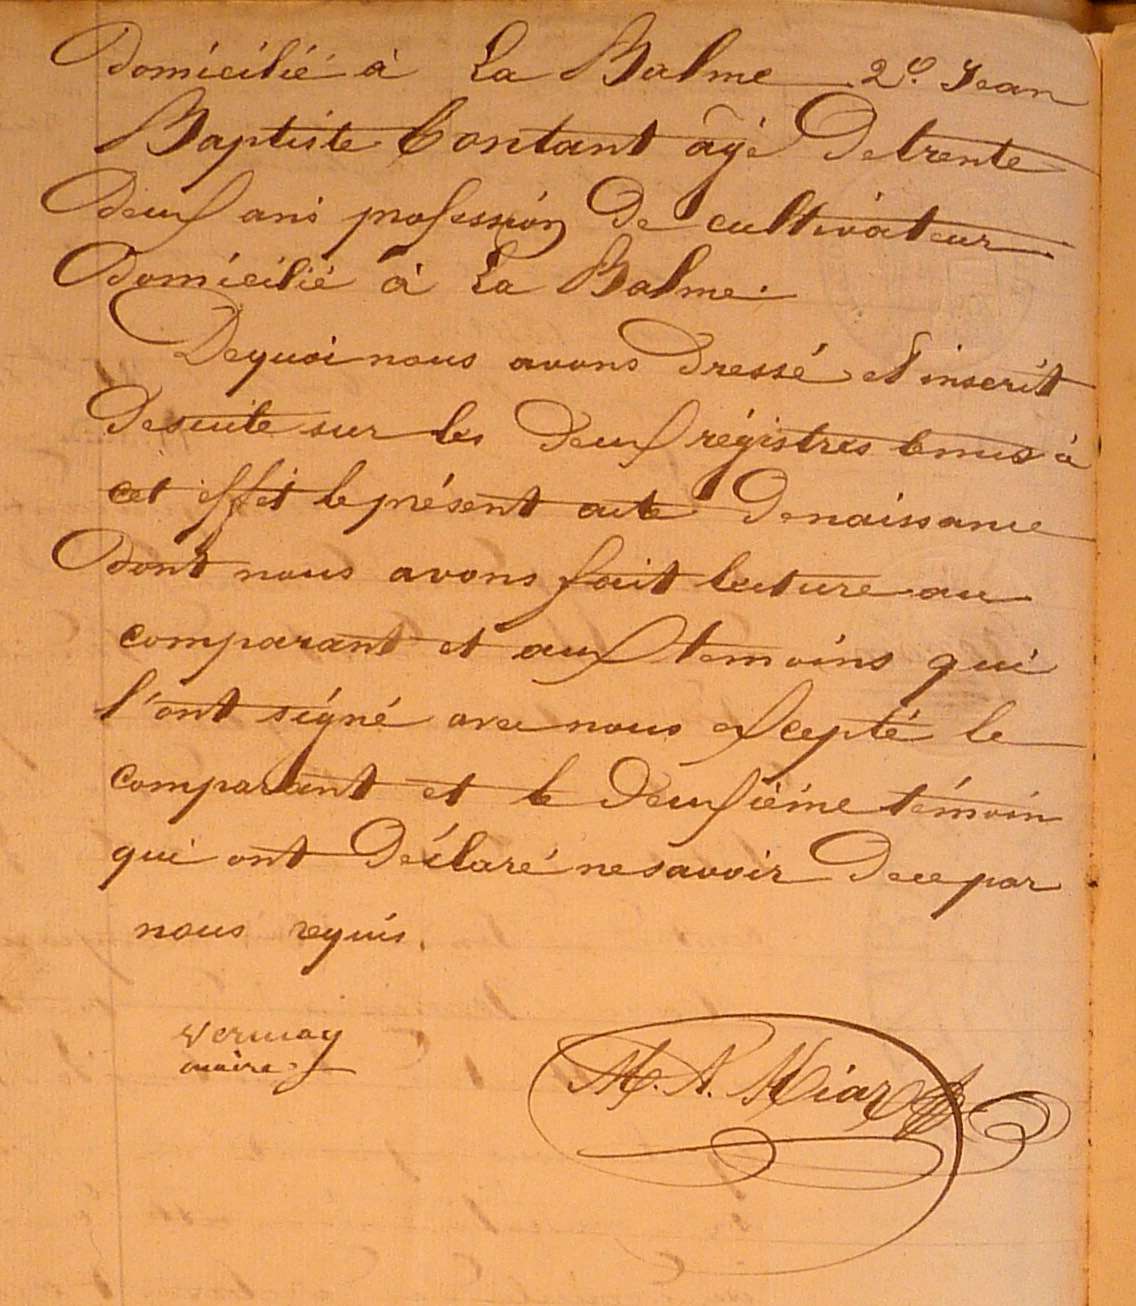 Domicilié à La Balme 2º. Jean
Baptiste Contant âgé De trente
deux ans profession De cultivateur
Domicilié à La Balme.
De quoi nous avons Dressé et inscrit
De suite sur les Deux régistres tenus à
cet effet le présent acte De naissance
Dont nous avons fait lecture au
comparant et aux temoins qui
l'ont signé avec nous excepté le
comparant et le Deuxième témoin
qui ont Déclaré ne savoir De ce par
nous requis.
maire